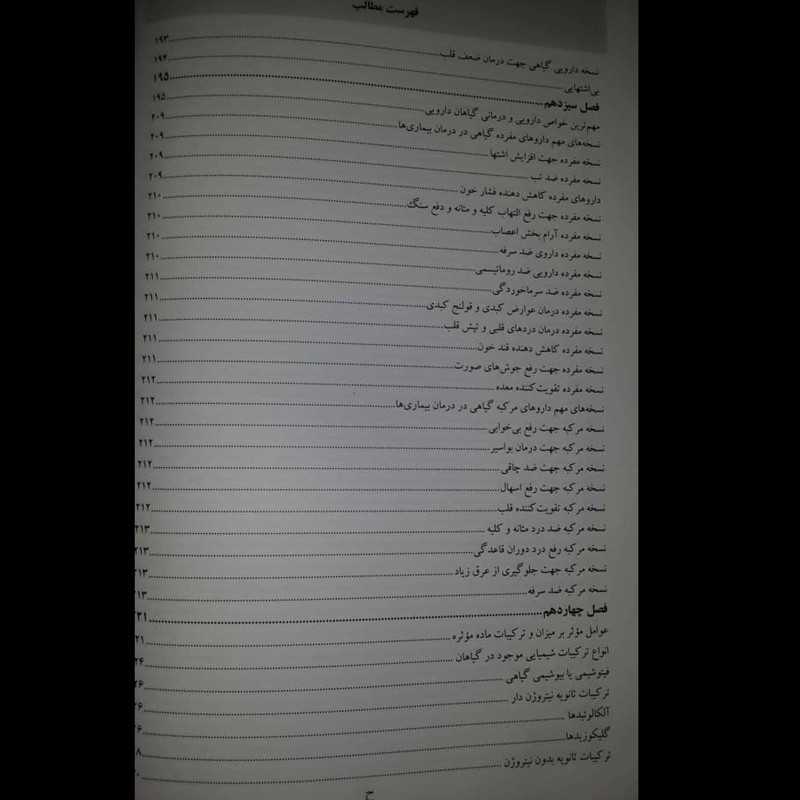 فهرست مطالب
نسخه دارویی گیاهی جهت درمان ضعف قلب ۱۹۳
بی‌اشتهایی ۱۹۴
فصل سیزدهم ۱۹۵
مهم‌ترین خواص دارویی و درمانی گیاهان دارویی ۱۹۵
نسخه‌های مهم داروهای مفرده گیاهی در درمان بیماری‌ها ۲۰۹
نسخه مفرده جهت افزایش اشتها ۲۰۹
نسخه مفرده ضد تب ۲۰۹
داروهای مفرده کاهش دهنده فشار خون ۲۰۹
نسخه مفرده جهت رفع التهاب کلیه و مثانه و دفع سنگ ۲۱۰
نسخه مفرده آرام بخش اعصاب ۲۱۰
نسخه مفرده داروی ضد سرفه ۲۱۰
نسخه مفرده دارویی ضد روماتیسمی ۲۱۰
نسخه مفرده ضد سرماخوردگی ۲۱۱
نسخه مفرده درمان عوارض کبدی و قولنج کبدی ۲۱۱
نسخه مفرده درمان دردهای قلبی و تپش قلب ۲۱۱
نسخه مفرده کاهش دهنده قند خون ۲۱۱
نسخه مفرده جهت رفع جوش‌های صورت ۲۱۱
نسخه مفرده تقویت‌کننده معده ۲۱۲
نسخه‌های مهم داروهای مرکبه گیاهی در درمان بیماری‌ها ۲۱۲
نسخه مرکبه جهت رفع بی‌خوابی ۲۱۲
نسخه مرکبه جهت درمان بواسیر ۲۱۲
نسخه مرکبه جهت ضد چاقی ۲۱۲
نسخه مرکبه جهت رفع اسهال ۲۱۲
نسخه مرکبه تقویت‌کننده قلب ۲۱۲
نسخه مرکبه ضد درد مثانه و کلیه ۲۱۳
نسخه مرکبه رفع درد دوران قاعدگی ۲۱۳
نسخه مرکبه جهت جلوگیری از عرق زیاد ۲۱۳
نسخه مرکبه ضد سرفه ۲۱۳
فصل چهاردهم ۲۲۱
عوامل مؤثر بر میزان و ترکیبات ماده مؤثره ۲۱
انواع ترکیبات شیمیایی موجود در گیاهان ۲۴
فیتوشیمی یا بیوشیمی گیاهی ۲۶
ترکیبات ثانویه نیتروژن دار ۲۶
آلکالوئیدها ۲۶
گلیکوزیدها ۸
ترکیبات ثانویه بدون نیتروژن ۰
ح